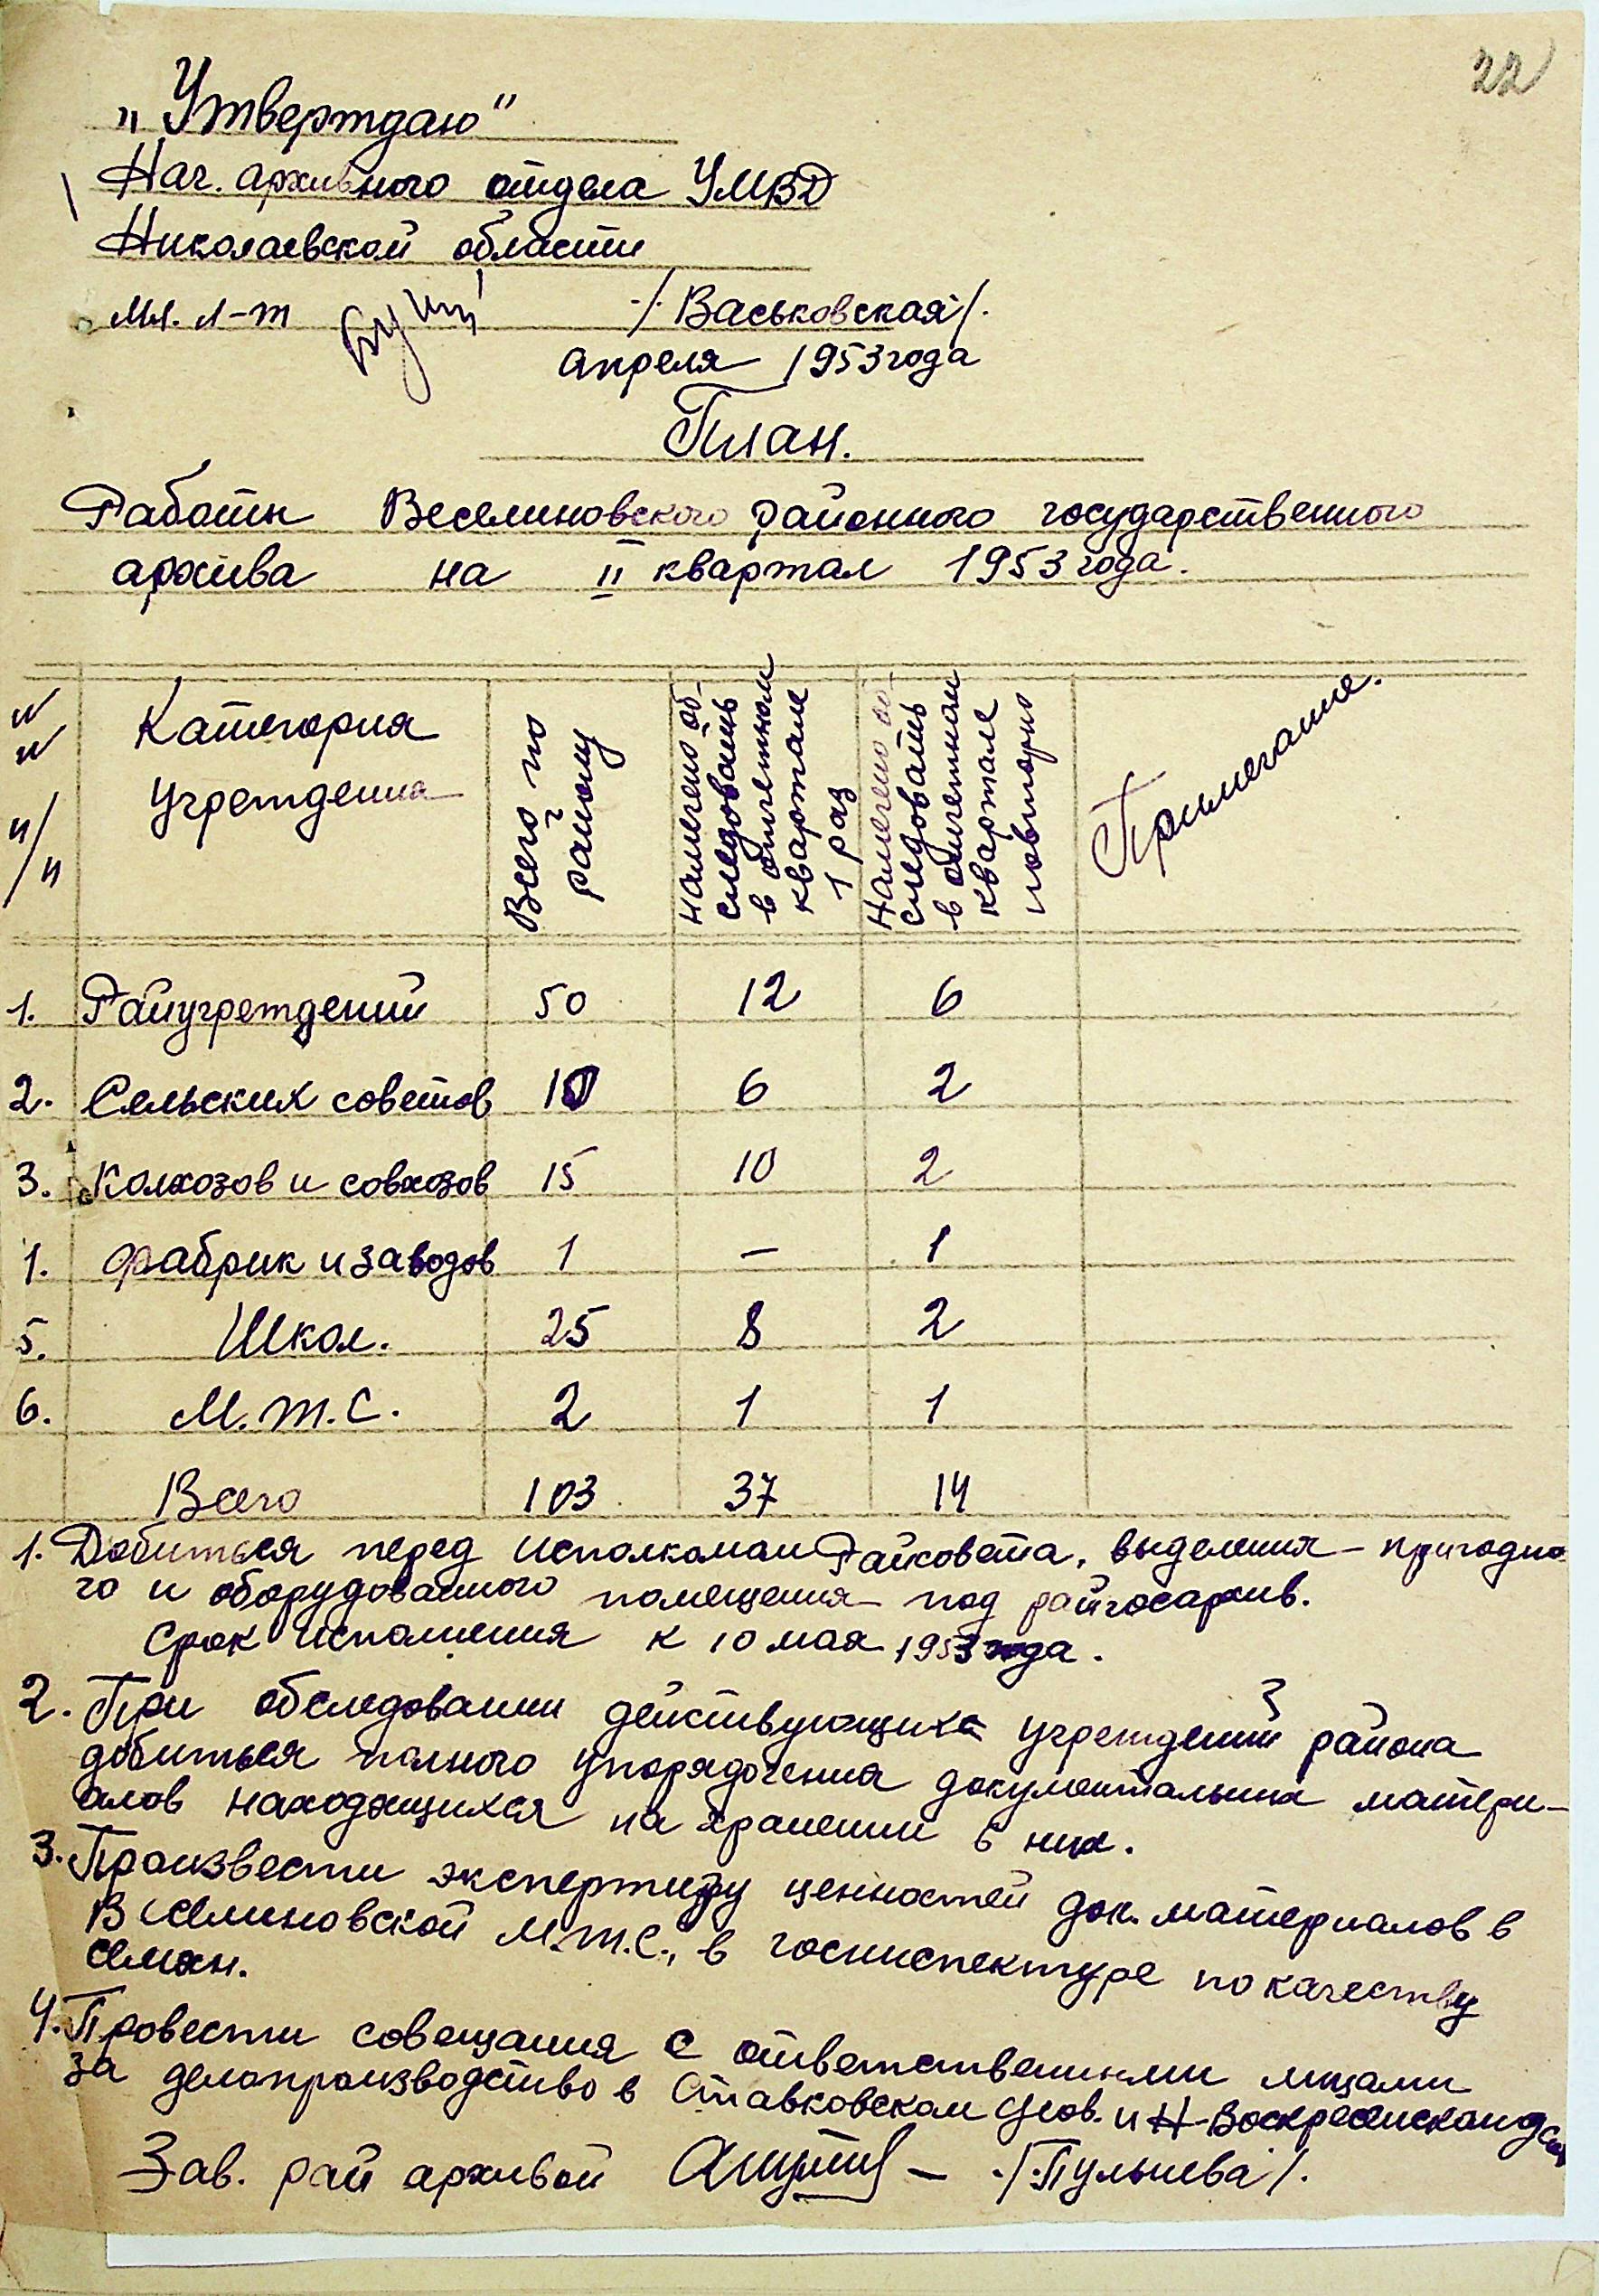 22
„Утверждаю"
Нач. архивного отдела УМВД
Николаевской области
Мл. л-т /Васьковская/.
апреля 1953 года
План.
Работы Веселиновского районного государственного
архива на II квартал 1953 года.
№ № п/п
Категория учреждения
Всего по району
Намечено обследовать в отчетном квартале 1 раз
Намечено обследовать в отчетном квартале повторно
Примечание.
1. Райучреждений 50 12 6
2. Сельских советов 10 6 2
3. Колхозов и совхозов 15 10 2
1. Фабрик и заводов 1 — 1
5. Школ. 25 8 2
6. М.Т.С. 2 1 1
Всего 103 37 14
1. Добиться перед исполкомом Райсовета, выделения – пригодно
го и оборудованного помещения под райгосархив.
Срок исполнения к 10 мая 1953 года.
2. При обследовании действующих учреждений района
добиться полного упорядочения документальных матери-
алов находящихся на хранении в них.
3. Произвести экспертизу ценностей док. материалов в
Веселиновской М.Т.С., в госинспектуре по качеству
семян.
4. Провести совещания с ответственными лицами
за делопроизводство в Ставковском и Н-Воскресенском
Зав. рай архивой – /Пульнева/.